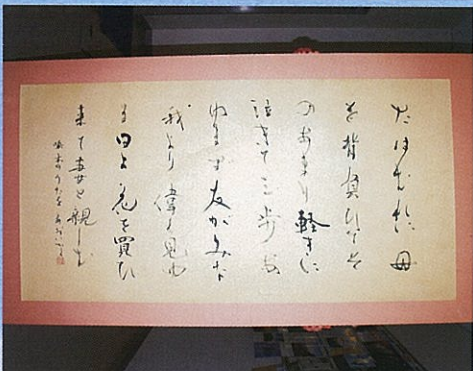 たはむれに母
を背負ひてそ
のあまり軽きに
泣きて三歩あ
ゆまず友がみな
我より偉く見ゆ
る日よ花を買ひ
来て妻と親しむ
啄木のうたを